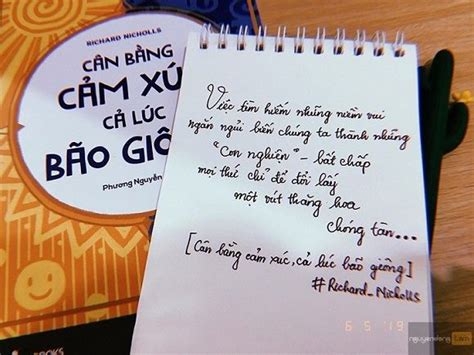 RICHARD NICHOLLS
CÂN BẰNG
CẢM XÚ
CẢ LÚC
BÃO GIÔ
Phương Nguyễn
BOOKS
Việc tìm kiếm những niềm vui
ngắn ngủi biến chúng ta thành những
"Con nghiện" - bất chấp
mọi thứ chỉ để đổi lấy
một vút thăng hoa
chóng tàn...
[Cân bằng cảm xúc, cả lúc bão giông]
#Richard_Nicholls
6 5 '19